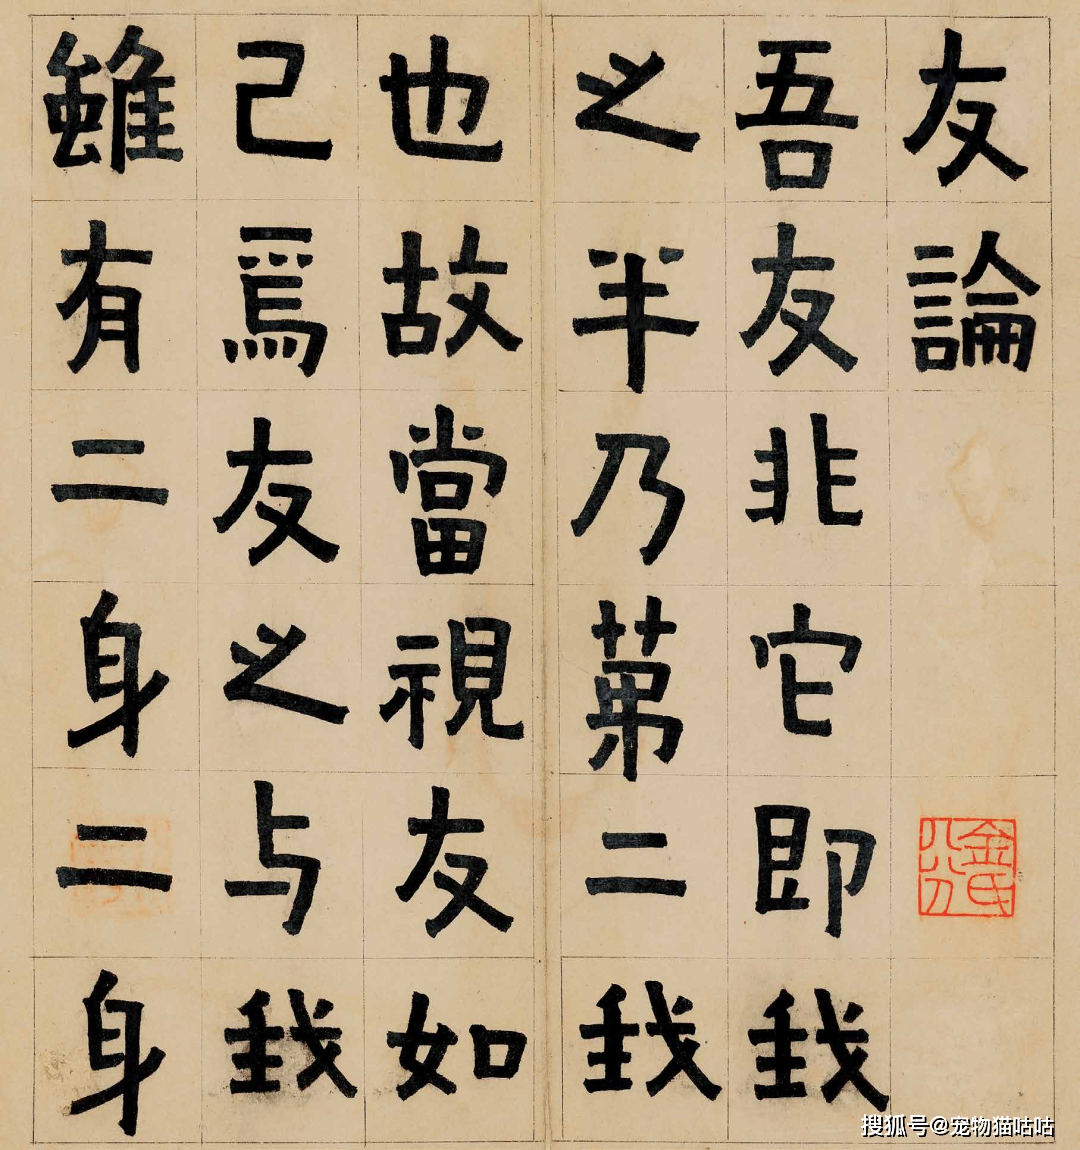 友論
吾友非它即我
之半乃第二我
也故當視友如
己焉友之与我
雖有二身二身
金氏八分
搜狐号@宠物猫咕咕